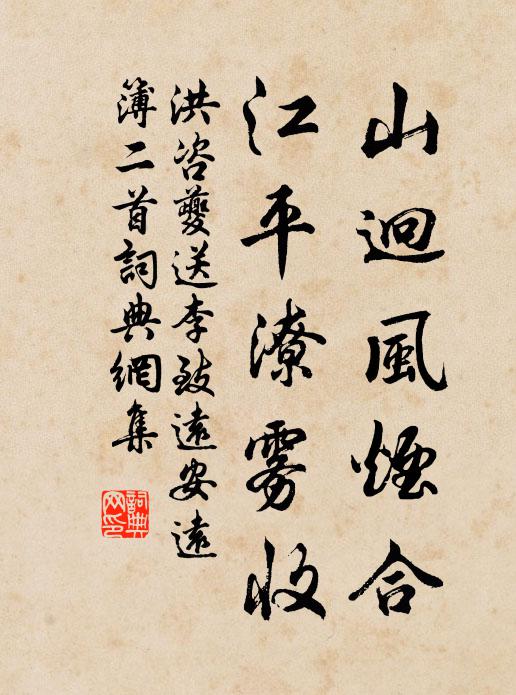 山迥風煙合
江平潦霧收
洪咨夔送李致遠安遠
簿二首詞典網集
詞典网印